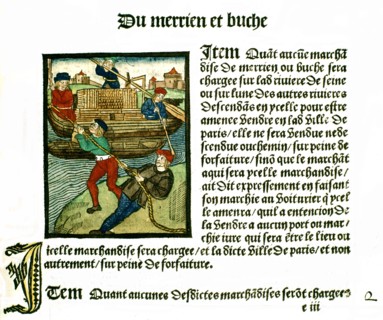 Du merrien et buche
Item Quāt aucūe marchā
dise de merrien ou buche sera
chargee sur lad riuiere de seine
ou sur lune des autres riuieres
descendās en ycelle pour estre
amence vendre en lad ville de
paris / elle ne sera vendue ne de
scendue ou chemin / sur peine de
forfaiture / sinō que le marchāt
a qui sera ycelle marchandise /
ait dit expressement en faisant
son marchie au voiturier q̄ ycel
le amenra / quil a entencion de
la vendre a aucun port ou mar
chie iure qui sera ētre le lieu ou
icelle marchandise sera chargee / et la dicte ville de paris / et non
autrement / sur peine de forfaiture.
ITEM Quant aucunes desdictes marchādises serōt chargees
e iii